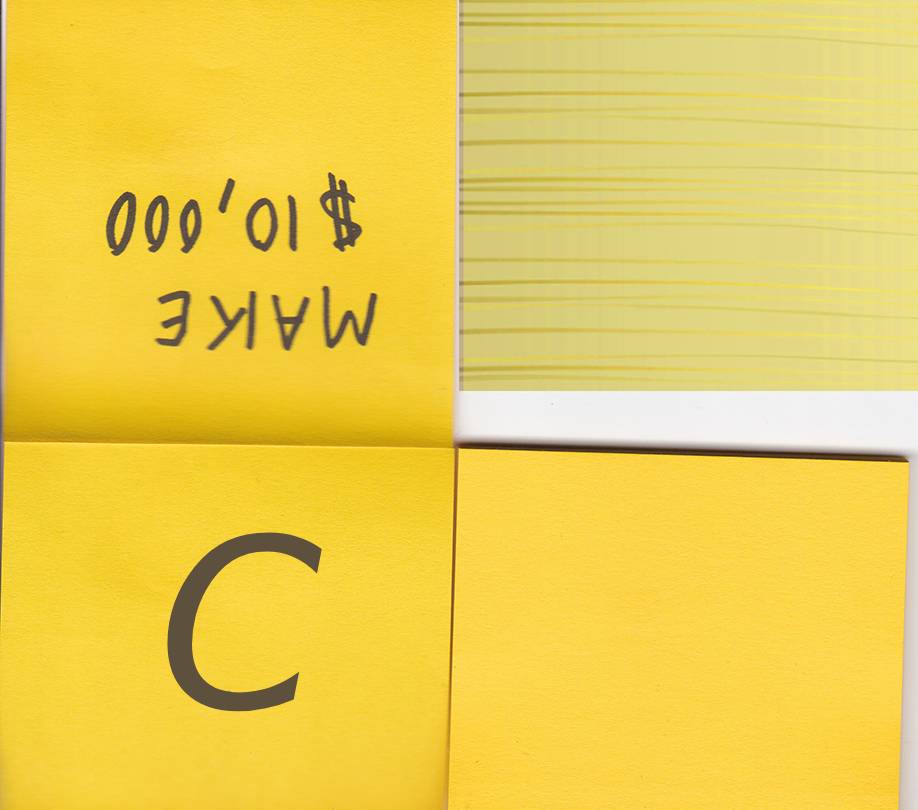 MAKE
$10,000
C